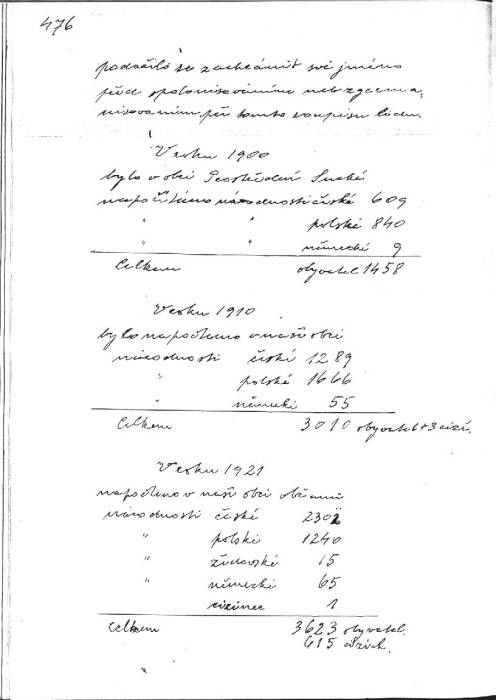 476
podařilo se zachránit své jméno
před spolonisováním neb zgerma,
nisováním při tomto soupisu lidu.
V roku 1900
bylo v obci Prostřední Suché
napočítáno národnosti české 609
" " polské 840
" " německé 9
Celkem obyvatel 1458
V roku 1910
bylo napočteno v naší obci
národnosti české 1289
" polské 1666
" německé 55
Celkem 3010 obyvatel + 3 cizí.
V roku 1921
napočteno v naší obci občanů
národnosti české 2302
" polské 1240
" židovské 15
" německé 65
cizinec 1
Celkem 3623 obyvatel.
615 cizích.